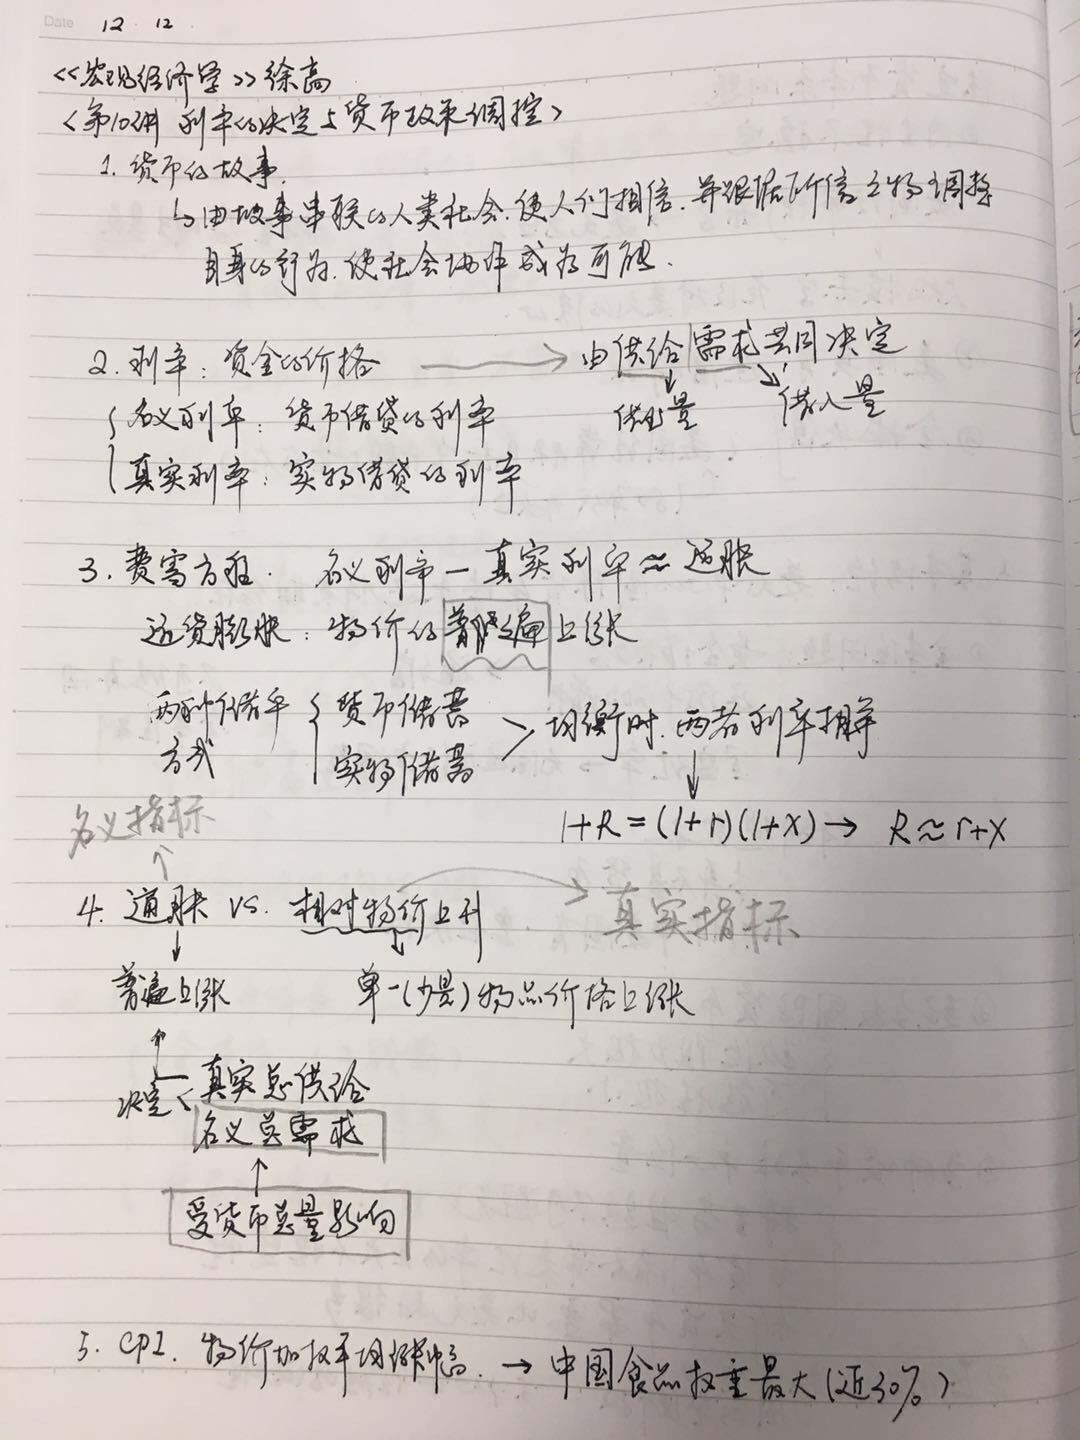 Date 12 · 12 ·
<<宏观经济学>> 徐高
<第10讲 利率的决定与货币政策调控>
1. 货币的故事.
↳由故事串联的人类社会. 使人们相信. 并跟据所信之物调整
自身的行为. 使社会协作成为可能.
2. 利率: 资金的价格 → 由供给|需求共同决定
↓借出量 ↘借入量
名义利率: 货币借贷的利率
真实利率: 实物借贷的利率
3. 费雪方程. 名义利率 - 真实利率 ≈ 通胀
通货膨胀: 物价的普遍上涨
两种储蓄 { 货币储蓄 > 均衡时. 两者利率相等
方式 实物储蓄
↓
1+R = (1+r)(1+x) → R ≈ r+x
名义指标
↑
4. 通胀 vs. 相对物价上升 真实指标
↓ ↓
普遍上涨 单一(少量)物品价格上涨
↑
决定 < 真实总供给
名义总需求
↑
受货币总量影响
5. CPI. 物价加权平均涨幅. → 中国食品权重最大(近30%)